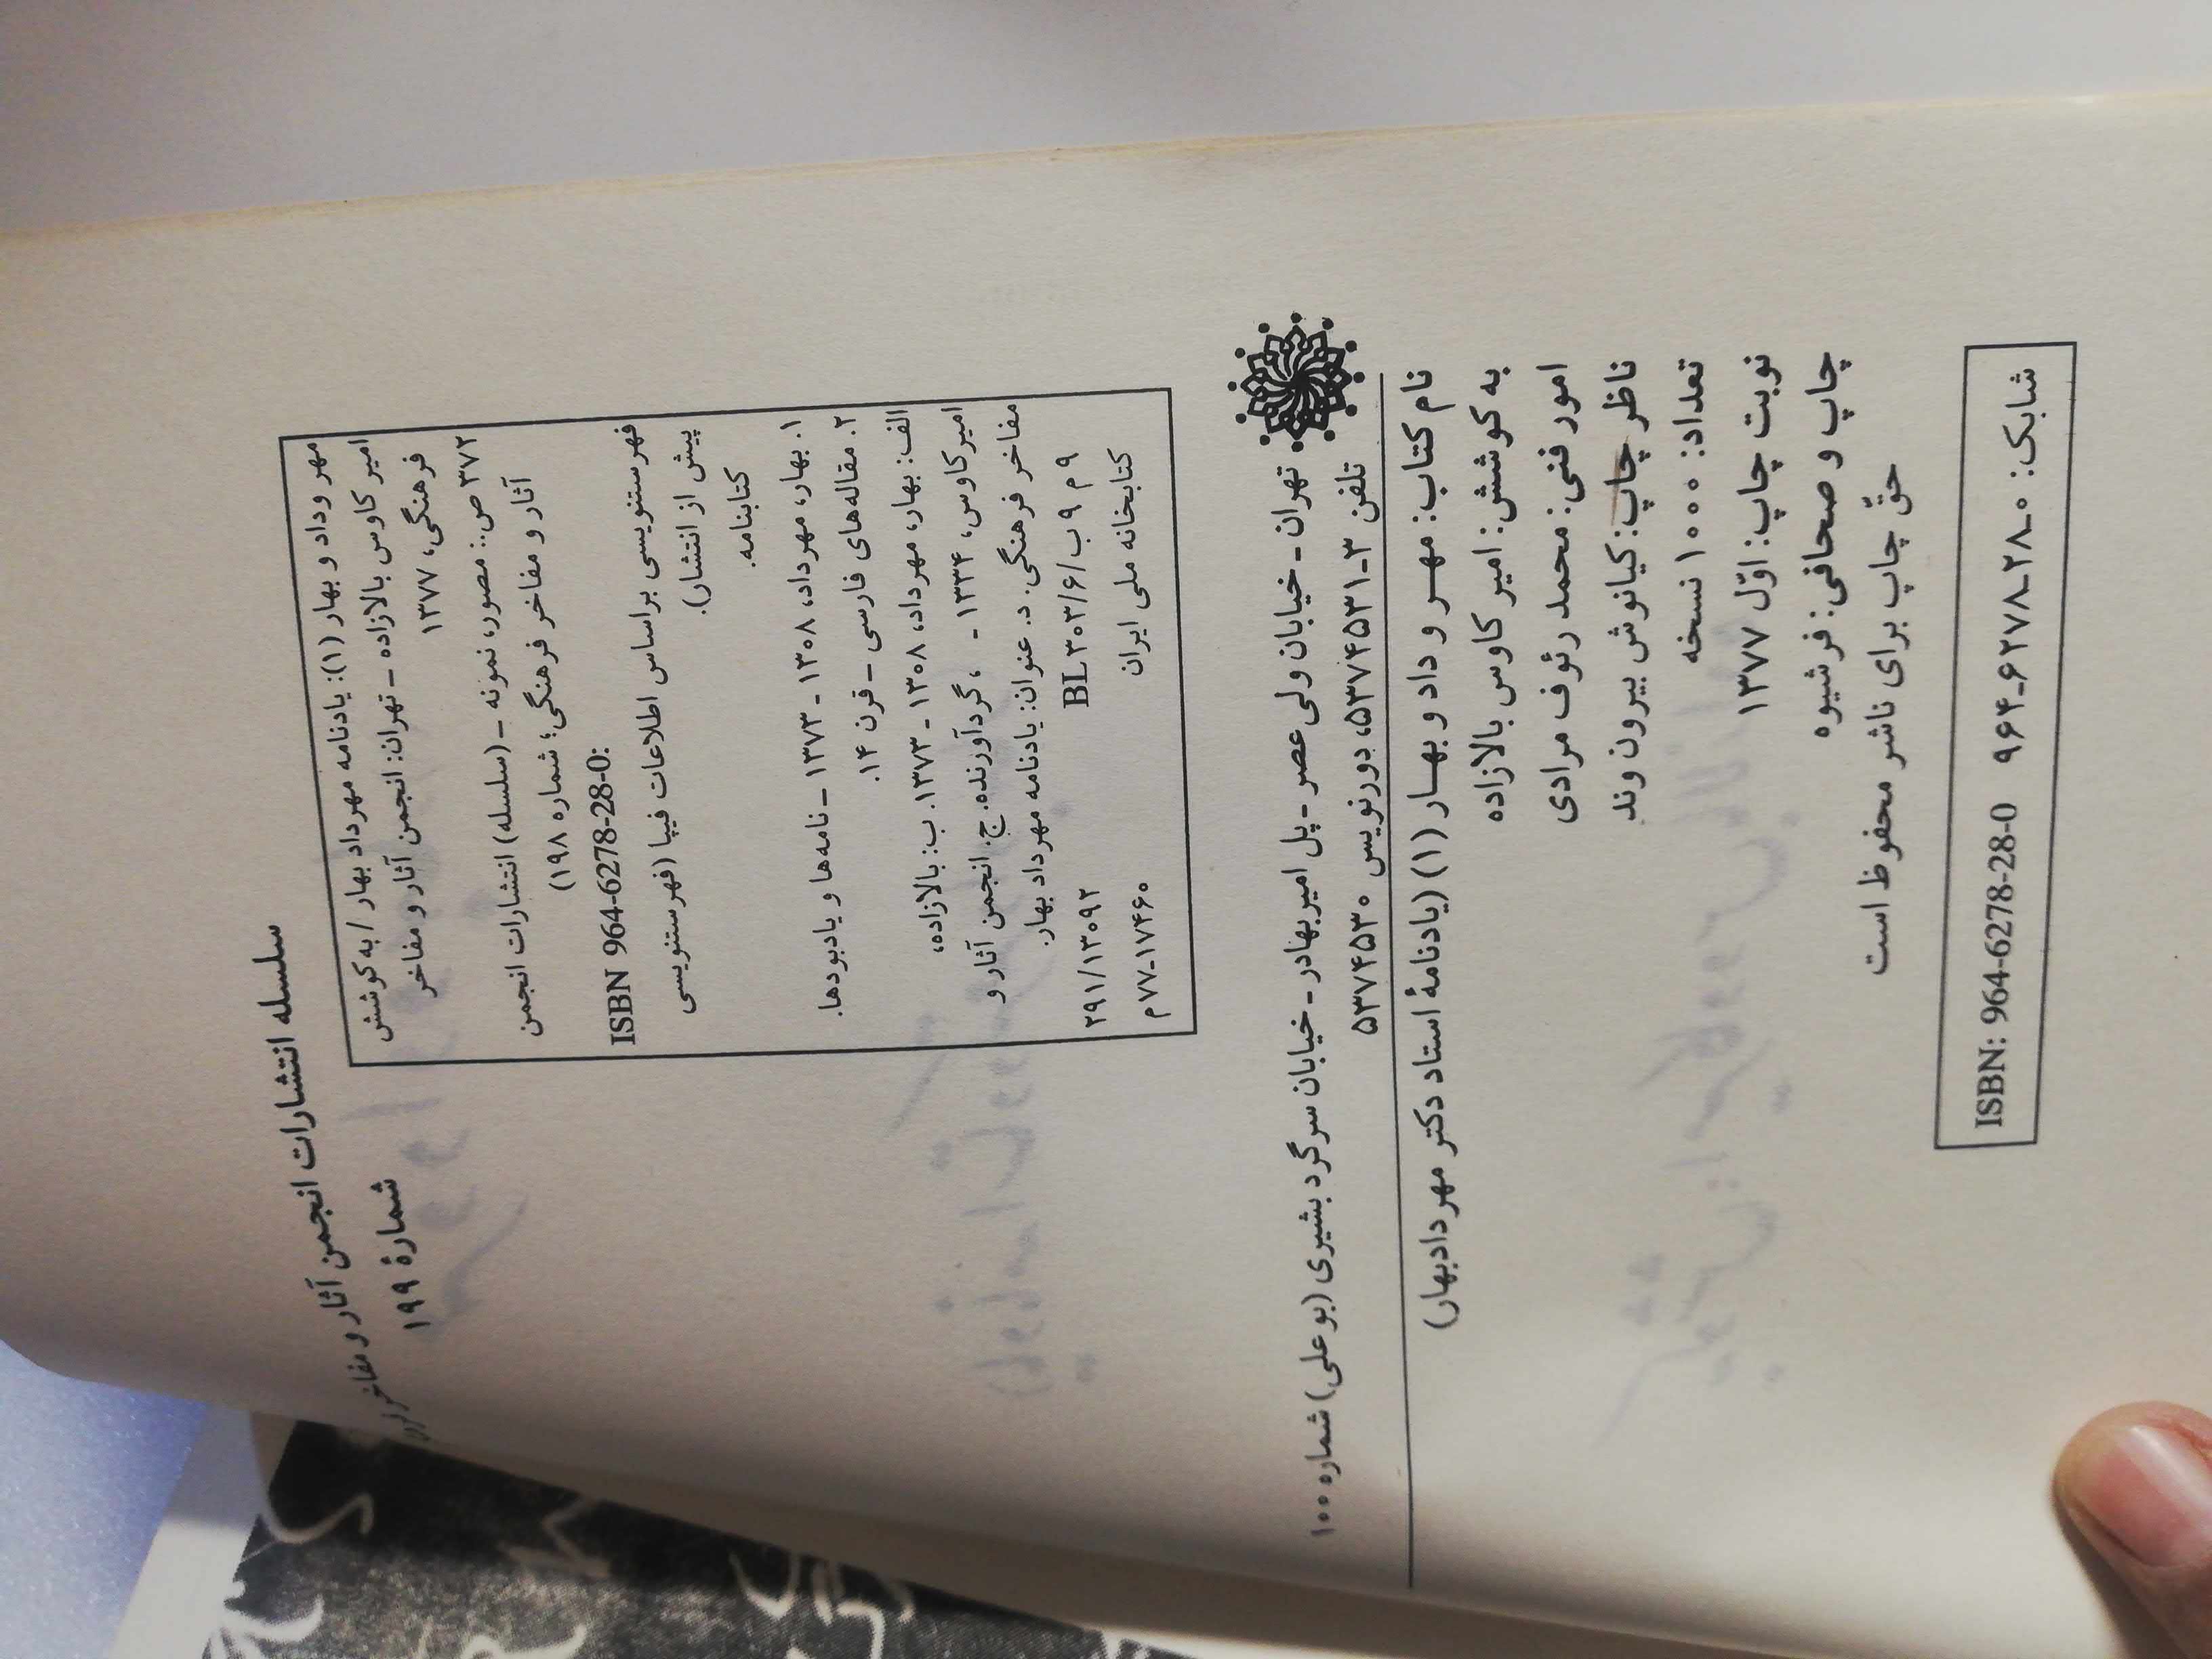 سلسله انتشارات انجمن آثار و مفاخر
شمارهٔ ۱۹۹
مهر و داد و بهار (۱): یادنامه مهرداد بهار / به کوشش
امیر کاوس بالازاده ـ تهران: انجمن آثار و مفاخر
فرهنگی، ۱۳۷۷
۳۷۲ ص.: مصور، نمونه ـ (سلسله) انتشارات انجمن
آثار و مفاخر فرهنگی؛ شماره ۱۹۸)
ISBN 964-6278-28-0:
فهرستنویسی براساس اطلاعات فیپا (فهرستنویسی
پیش از انتشار).
کتابنامه.
۱. بهار، مهرداد، ۱۳۰۸ ـ ۱۳۷۳ ـ نامه‌ها و یادبودها.
۲. مقاله‌های فارسی ـ قرن ۱۴.
الف: بهار، مهرداد، ۱۳۰۸ ـ ۱۳۷۳. ب: بالازاده،
امیر کاوس، ۱۳۳۴ ـ ، گردآورنده. ج. انجمن آثار و
مفاخر فرهنگی. د. عنوان: یادنامه مهرداد بهار.
۹م ۹ب/۶/BL۳۰۳ ۲۹۱/۱۳۰۹۲
کتابخانه ملی ایران ۱۷۴۶۰-۷۷م
تهران ـ خیابان ولی عصر ـ پل امیربهادر ـ خیابان سرگرد بشیری (بوعلی) شماره ۱۰۰
تلفن ۳-۵۳۷۴۵۳۱، دورنویس ۵۳۷۴۵۳۰
نام کتاب: مهر و داد و بهار (۱) (یادنامهٔ استاد دکتر مهرداد بهار)
به کوشش: امیر کاوس بالازاده
امور فنی: محمد رئوف مرادی
ناظر چاپ: کیانوش بیرون وند
تعداد: ۱۰۰۰ نسخه
نوبت چاپ: اوّل ۱۳۷۷
چاپ و صحافی: فرشیوه
حقّ چاپ برای ناشر محفوظ است
شابک: ۰-۲۸-۶۲۷۸-۹۶۴ ISBN: 964-6278-28-0